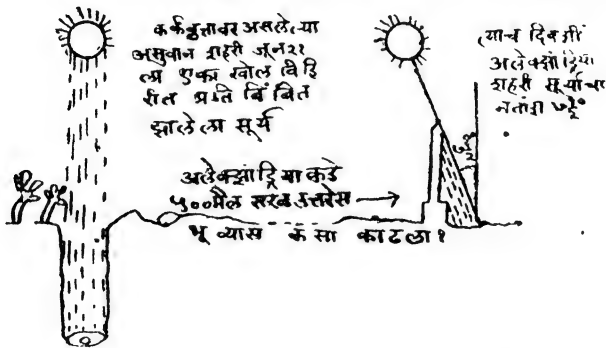 कर्कवृत्तावर असलेल्या
असुवान शहरी जून२१
ला एका खोल विहि
रीत प्रति बिंबित
झालेला सूर्य
त्याच दिवशीं
अलेक्झांड्रिया
शहरी सूर्याचा
नतांश ७१/२°
७१/२
अलेक्झांड्रिया कडे
५००मैल सरळ उत्तरेस
भू व्यास कसा काढला?